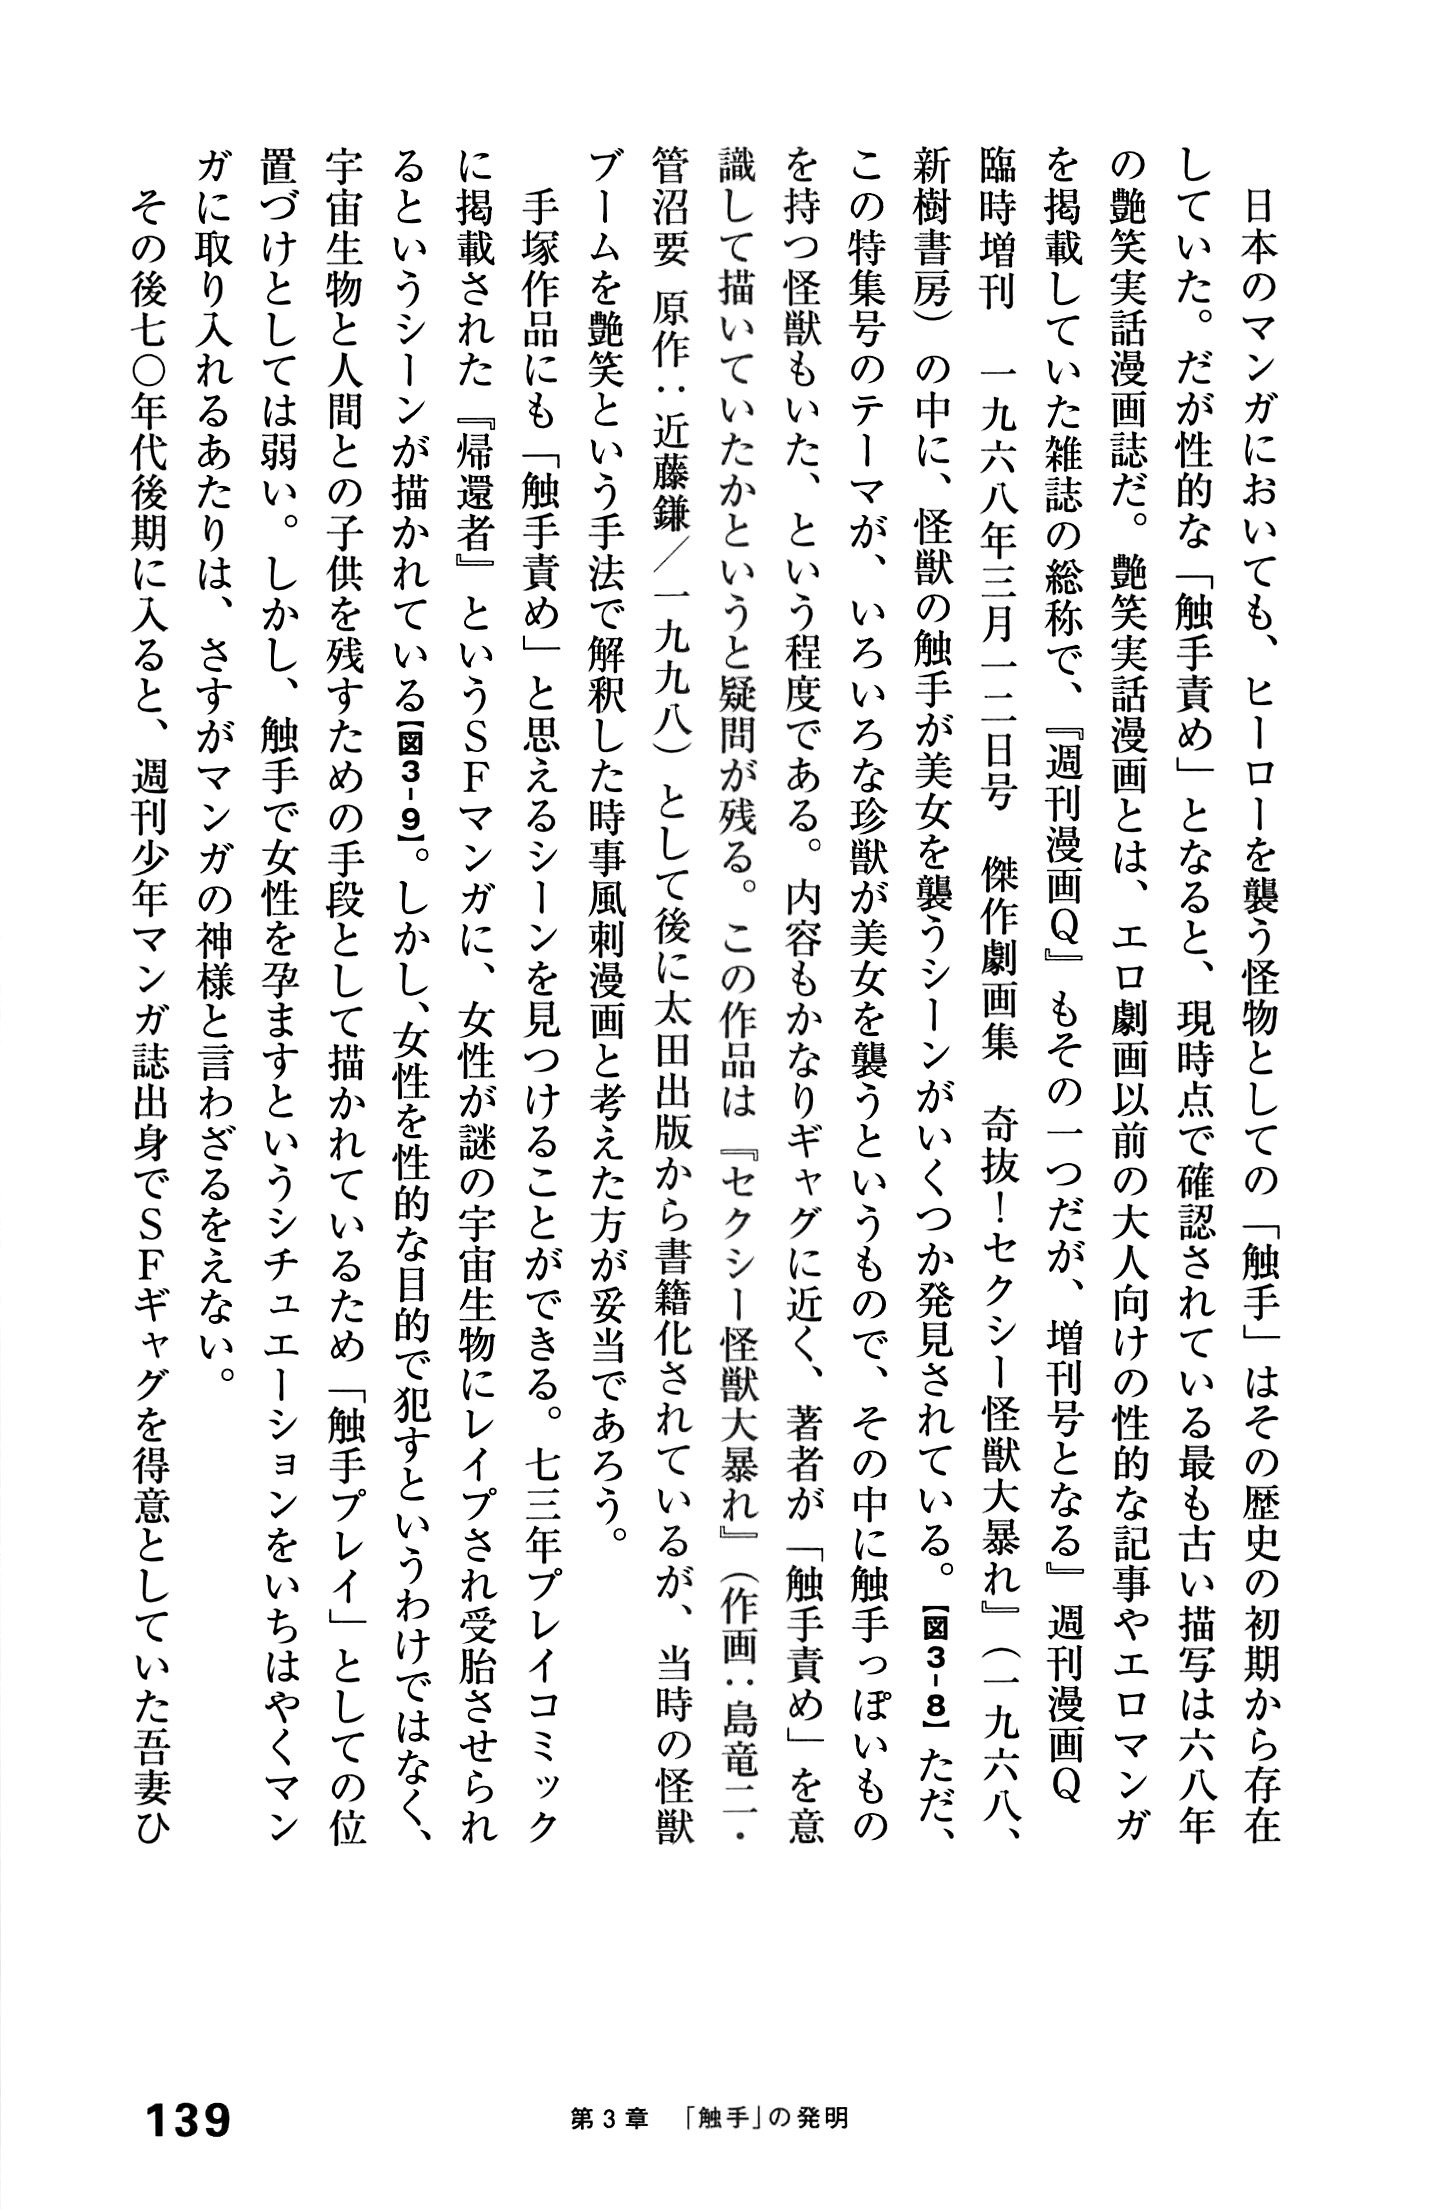 日本のマンガにおいても、ヒーローを襲う怪物としての「触手」はその歴史の初期から存在
していた。だが性的な「触手責め」となると、現時点で確認されている最も古い描写は六八年
の艶笑実話漫画誌だ。艶笑実話漫画とは、エロ劇画以前の大人向けの性的な記事やエロマンガ
を掲載していた雑誌の総称で、『週刊漫画Q』もその一つだが、増刊号となる』週刊漫画Q
臨時増刊　一九六八年三月一二日号　傑作劇画集　奇抜！セクシー怪獣大暴れ』（一九六八、
新樹書房）の中に、怪獣の触手が美女を襲うシーンがいくつか発見されている。【図3-8】ただ、
この特集号のテーマが、いろいろな珍獣が美女を襲うというもので、その中に触手っぽいもの
を持つ怪獣もいた、という程度である。内容もかなりギャグに近く、著者が「触手責め」を意
識して描いていたかというと疑問が残る。この作品は『セクシー怪獣大暴れ』（作画：島竜二・
管沼要 原作：近藤鎌／一九九八）として後に太田出版から書籍化されているが、当時の怪獣
ブームを艶笑という手法で解釈した時事風刺漫画と考えた方が妥当であろう。
　手塚作品にも「触手責め」と思えるシーンを見つけることができる。七三年プレイコミック
に掲載された『帰還者』というSFマンガに、女性が謎の宇宙生物にレイプされ受胎させられ
るというシーンが描かれている【図3-9】。しかし、女性を性的な目的で犯すというわけではなく、
宇宙生物と人間との子供を残すための手段として描かれているため「触手プレイ」としての位
置づけとしては弱い。しかし、触手で女性を孕ますというシチュエーションをいちはやくマン
ガに取り入れるあたりは、さすがマンガの神様と言わざるをえない。
　その後七〇年代後期に入ると、週刊少年マンガ誌出身でSFギャグを得意としていた吾妻ひ
139
第3章　「触手」の発明